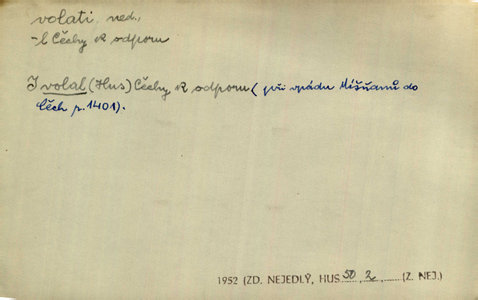 volati, ned.,
-l Čechy k odporu
I volal (Hus) Čechy k odporu (při vpádu Míšňanů do
Čech r. 1401).
1952 (ZD. NEJEDLÝ, HUS 50, 2, (Z. NEJ.)